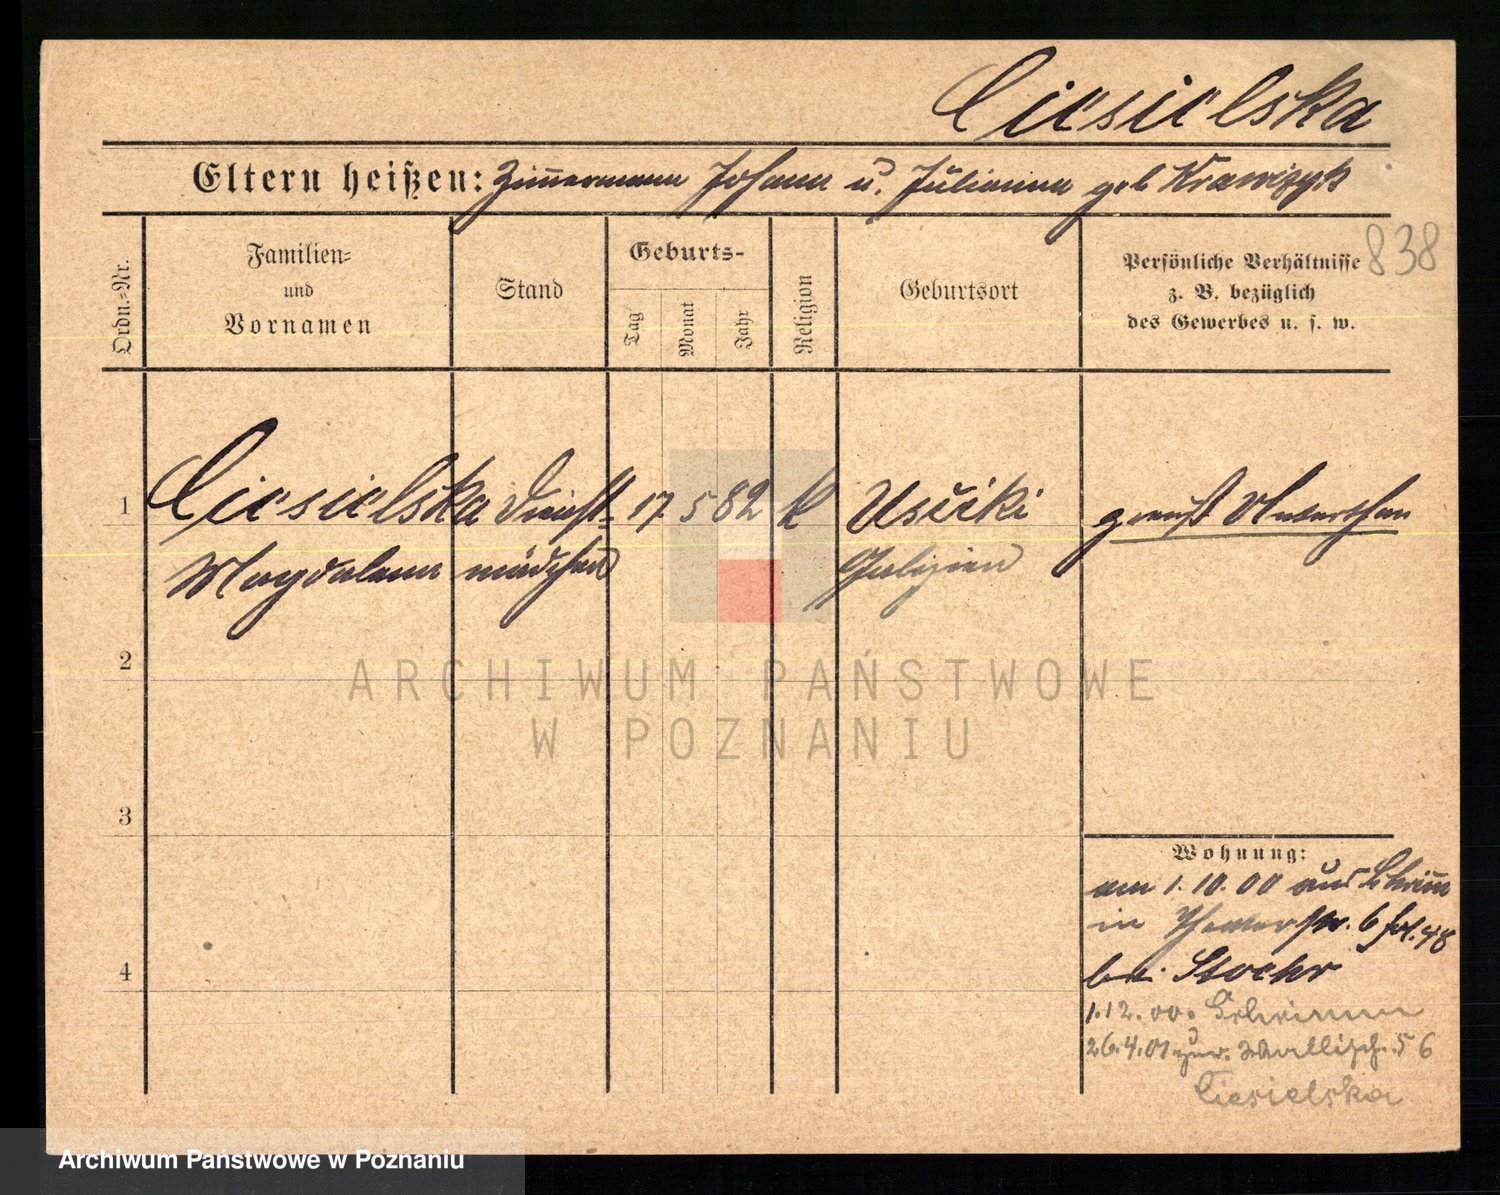 Ciesielska
Eltern heißen: Zimmermann Johann u. Julianna geb Krawczyk
838
Ordn.-Nr.
Familien-
und
Vornamen
Stand
Geburts-
Tag
Monat
Jahr
Religion
Geburtsort
Persönliche Verhältnisse
z. B. bezüglich
des Gewerbes u. s. w.
1
Ciesielska Dienst- 17 5 82 k Usciki
Magdalena mädchen Galizien
2
ARCHIWUM PAŃSTWOWE
W POZNANIU
3
Wohnung:
am 1.10.00 aus Schrimm
in 6 fol. 48
bei Stoehr
4
1.12.00. Schrimm
26.4.01 zur. Wallisch. 56
Ciesielska
Archiwum Państwowe w Poznaniu